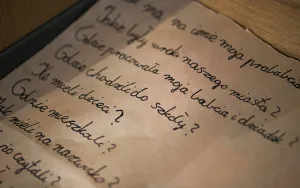 miał na na imię moja prababcia
Jakie były uroki naszego miasta?
Gdzie pracowała moja babcia i dziadek?
Gdzie chodzili do szkoły?
Ile mieli dzieci?
Gdzie mieszkali?
miał na nazwisko?
czytali?